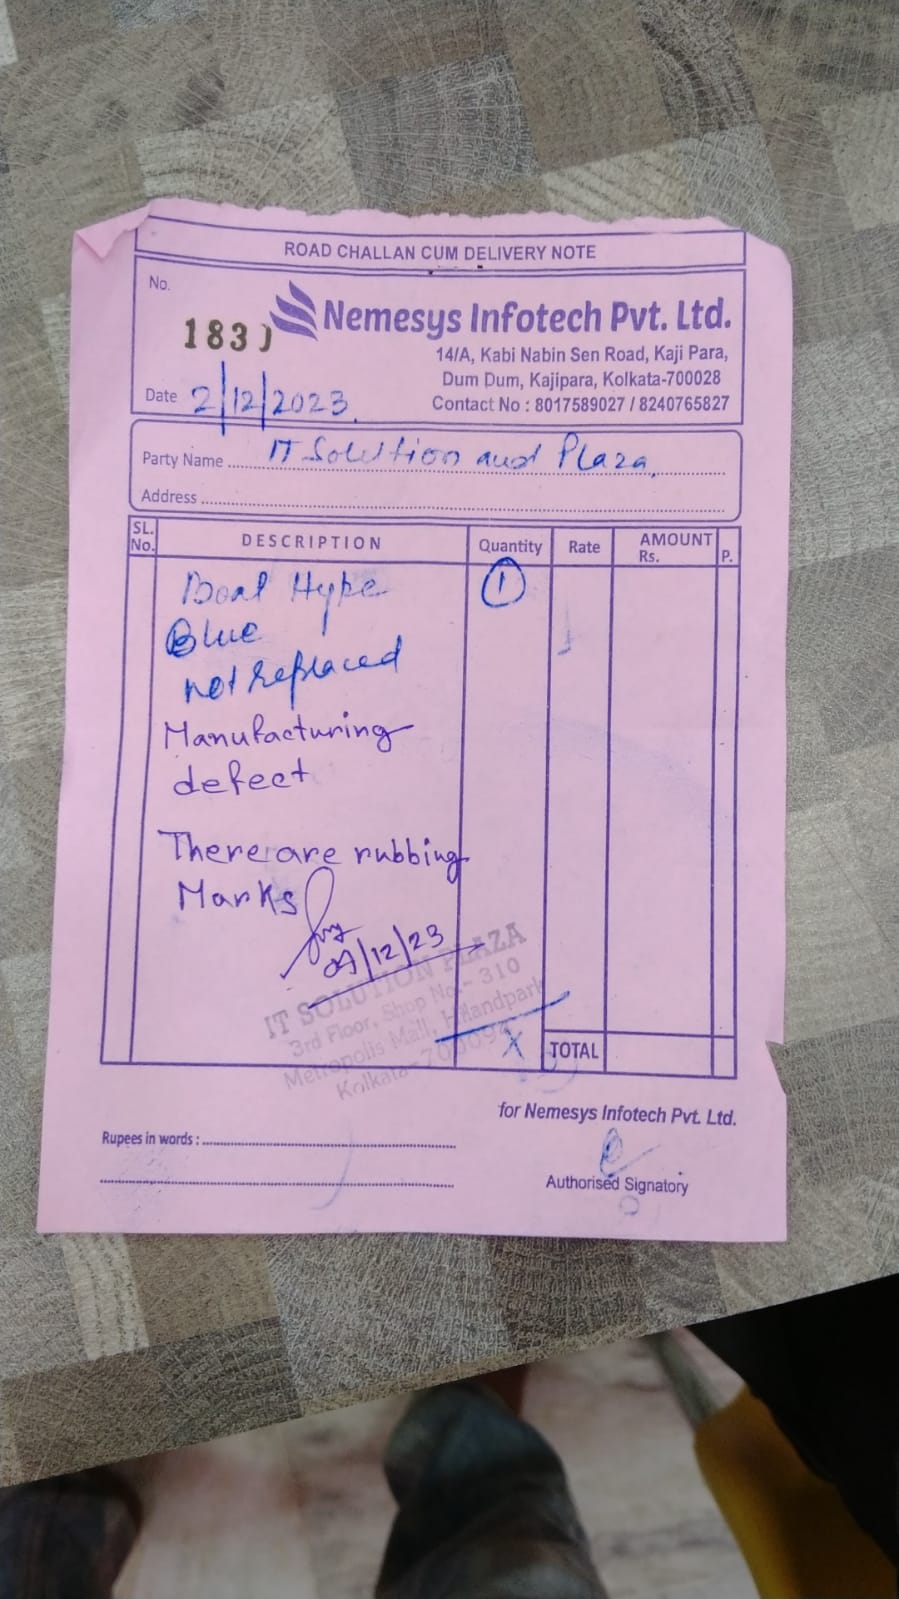 ROAD CHALLAN CUM DELIVERY NOTE
No.
183
Nemesys Infotech Pvt. Ltd.
14/A, Kabi Nabin Sen Road, Kaji Para,
Dum Dum, Kajipara, Kolkata-700028
Contact No : 8017589027 / 8240765827
Date 2/12/2023
Party Name IT Solution and Plaza
Address
SL. No. DESCRIPTION Quantity Rate AMOUNT Rs. P.
Boat Hype 1
Blue
not replaced
Manufacturing
defect
There are rubbing
Marks
/12/23
IT SOLUTION PLAZA
3rd Floor, Shop No.- 310
Metropolis Mall, Hilandpark
Kolkata-700094
TOTAL
for Nemesys Infotech Pvt. Ltd.
Rupees in words :
Authorised Signatory